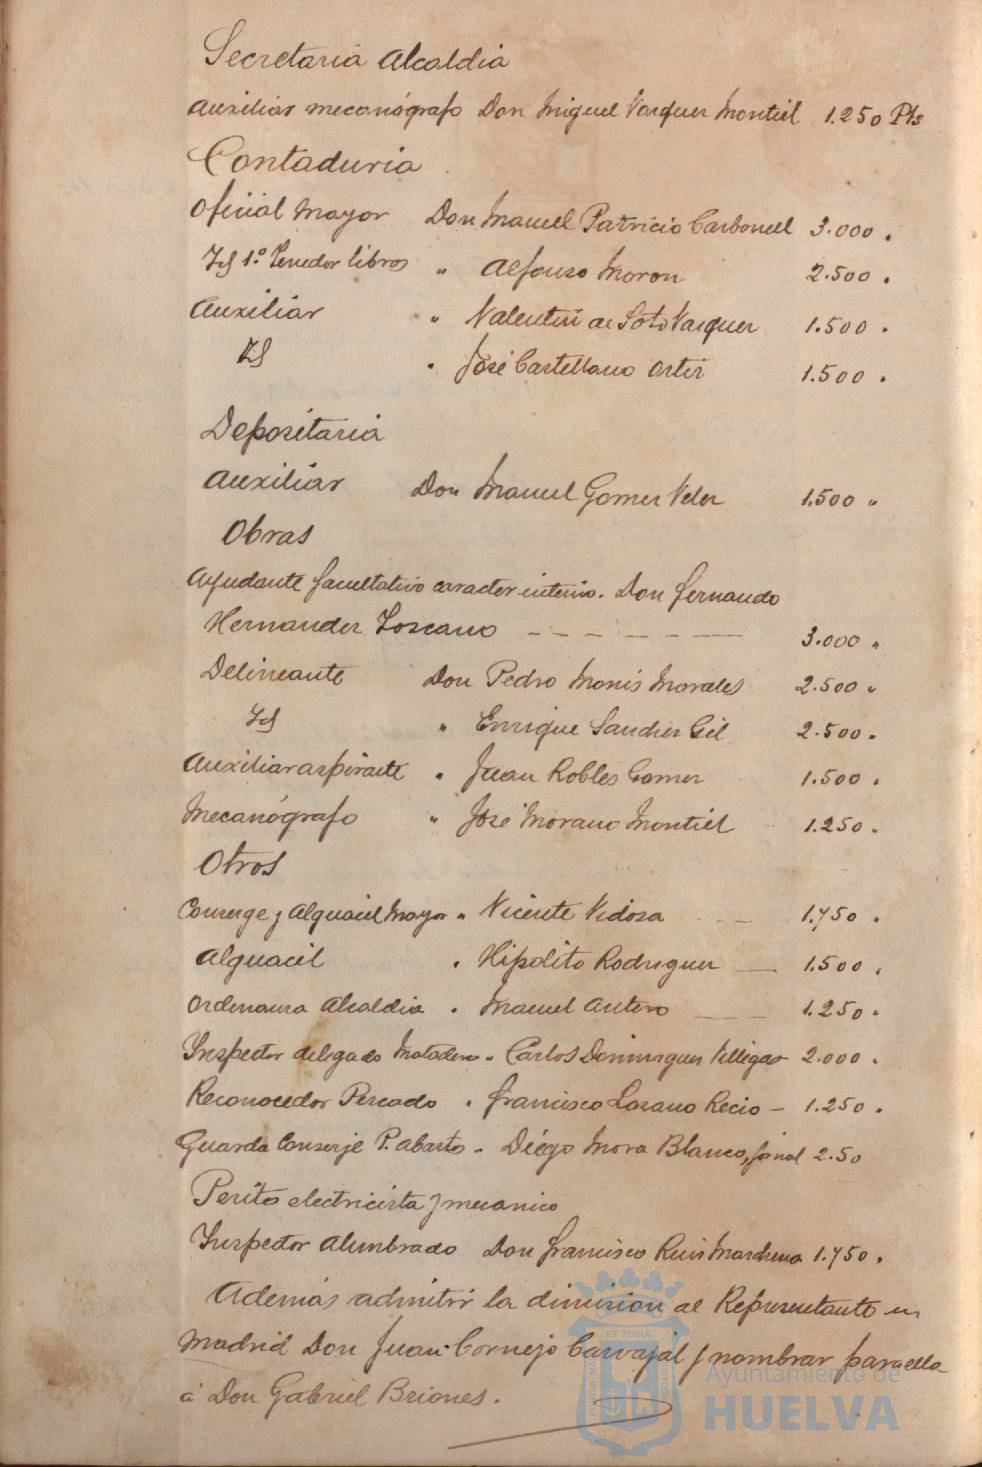 Secretaria Alcaldia
Auxiliar mecanógrafo Don Miguel Vazquez Montiel 1.250 Pts
Contaduria
Oficial Mayor Don Manuel Patricio Carbonell 3.000 "
Id 1.º Tenedor libros " Alfonso Moron 2.500 "
Auxiliar " Valentin de Soto Vazquez 1.500 "
Id " José Castellano Ortiz 1.500 "
Depositaria
Auxiliar Don Manuel Gomez Velez 1.500 "
Obras
Ayudante facultativo caracter interino. Don Fernando
Hernandez Toscano - - - - - - - 3.000 "
Delineante Don Pedro Monis Morales 2.500 "
Id " Enrique Sanchez Gil 2.500 "
Auxiliar aspirante " Juan Robles Gomez 1.500 "
Mecanógrafo " José Morano Montiel 1.250 "
Otros
Conserge y Alguacil Mayor " Vicente Vidosa 1.750 "
Alguacil " Hipolito Rodriguez 1.500 "
Ordenanza Alcaldia " Manuel Antero 1.250 "
Inspector delegado Matadero " Carlos Dominguez Villegas 2.000 "
Reconocedor Pescado " Francisco Lozano Recio - 1.250 "
Guarda Conserje P. Abasto " Diégo Mora Blanco, jornal 2.50
Perito electricista y mecanico
Inspector Alumbrado Don Francisco Ruiz Marchena 1.750 "
Además admitir la dimision al Representante en
Madrid Don Juan Cornejo Carvajal y nombrar para ello
á Don Gabriel Briones.
ET TERRA
Ayuntamiento de
HUELVA